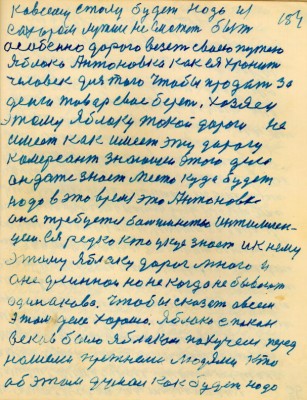 184
ко всему столу будет надо и
сахаром лучше не может быт
особенно дорого везет свою путаю
Яблока Антоновка как ея хронит
человек для того чтобы продат за
денги товар свое берет. Хозяен
этому яблоку такой дороги не
имеет как имеет эту дорогу
комерсант знающей этого дела
он даже знает место куда будет
надо в это время это Антоновке
она требуется
ея редко кто уже знает и к нему
этому яблоку дорог много и
оне длинной но не когда не бывают
одинакова. Чтобы сказат о всем
этом деле хорошо. Яблока с покан
веков было яблаком пахучем перед
нашеми прежнеми людями кто
об этим думал как будет надо